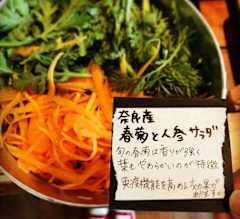 奈良産
春菊と人参サラダ
旬の春菊は香りが強く
葉もやわらかいのが特徴
免疫機能を高める効果が
あります